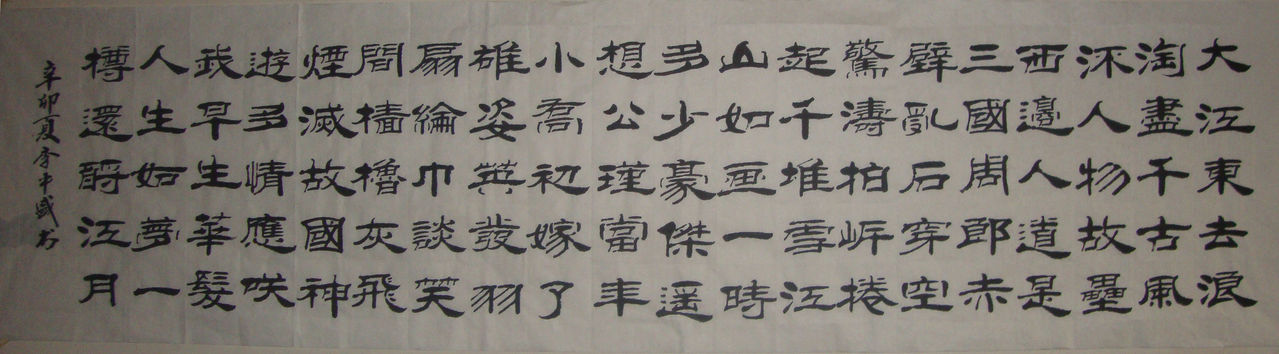 大江東去浪
淘盡千古風
流人物故壘
西邊人道是
三國周郎赤
壁亂石穿空
驚濤拍岸捲
起千堆雪江
山如画一時
多少豪傑遥
想公瑾當年
小喬初嫁了
雄姿英發羽
扇綸巾談笑
間檣櫓灰飛
煙滅故國神
遊多情應咲
我早生華髮
人生如夢一
樽還酹江月
辛卯夏李中盛书